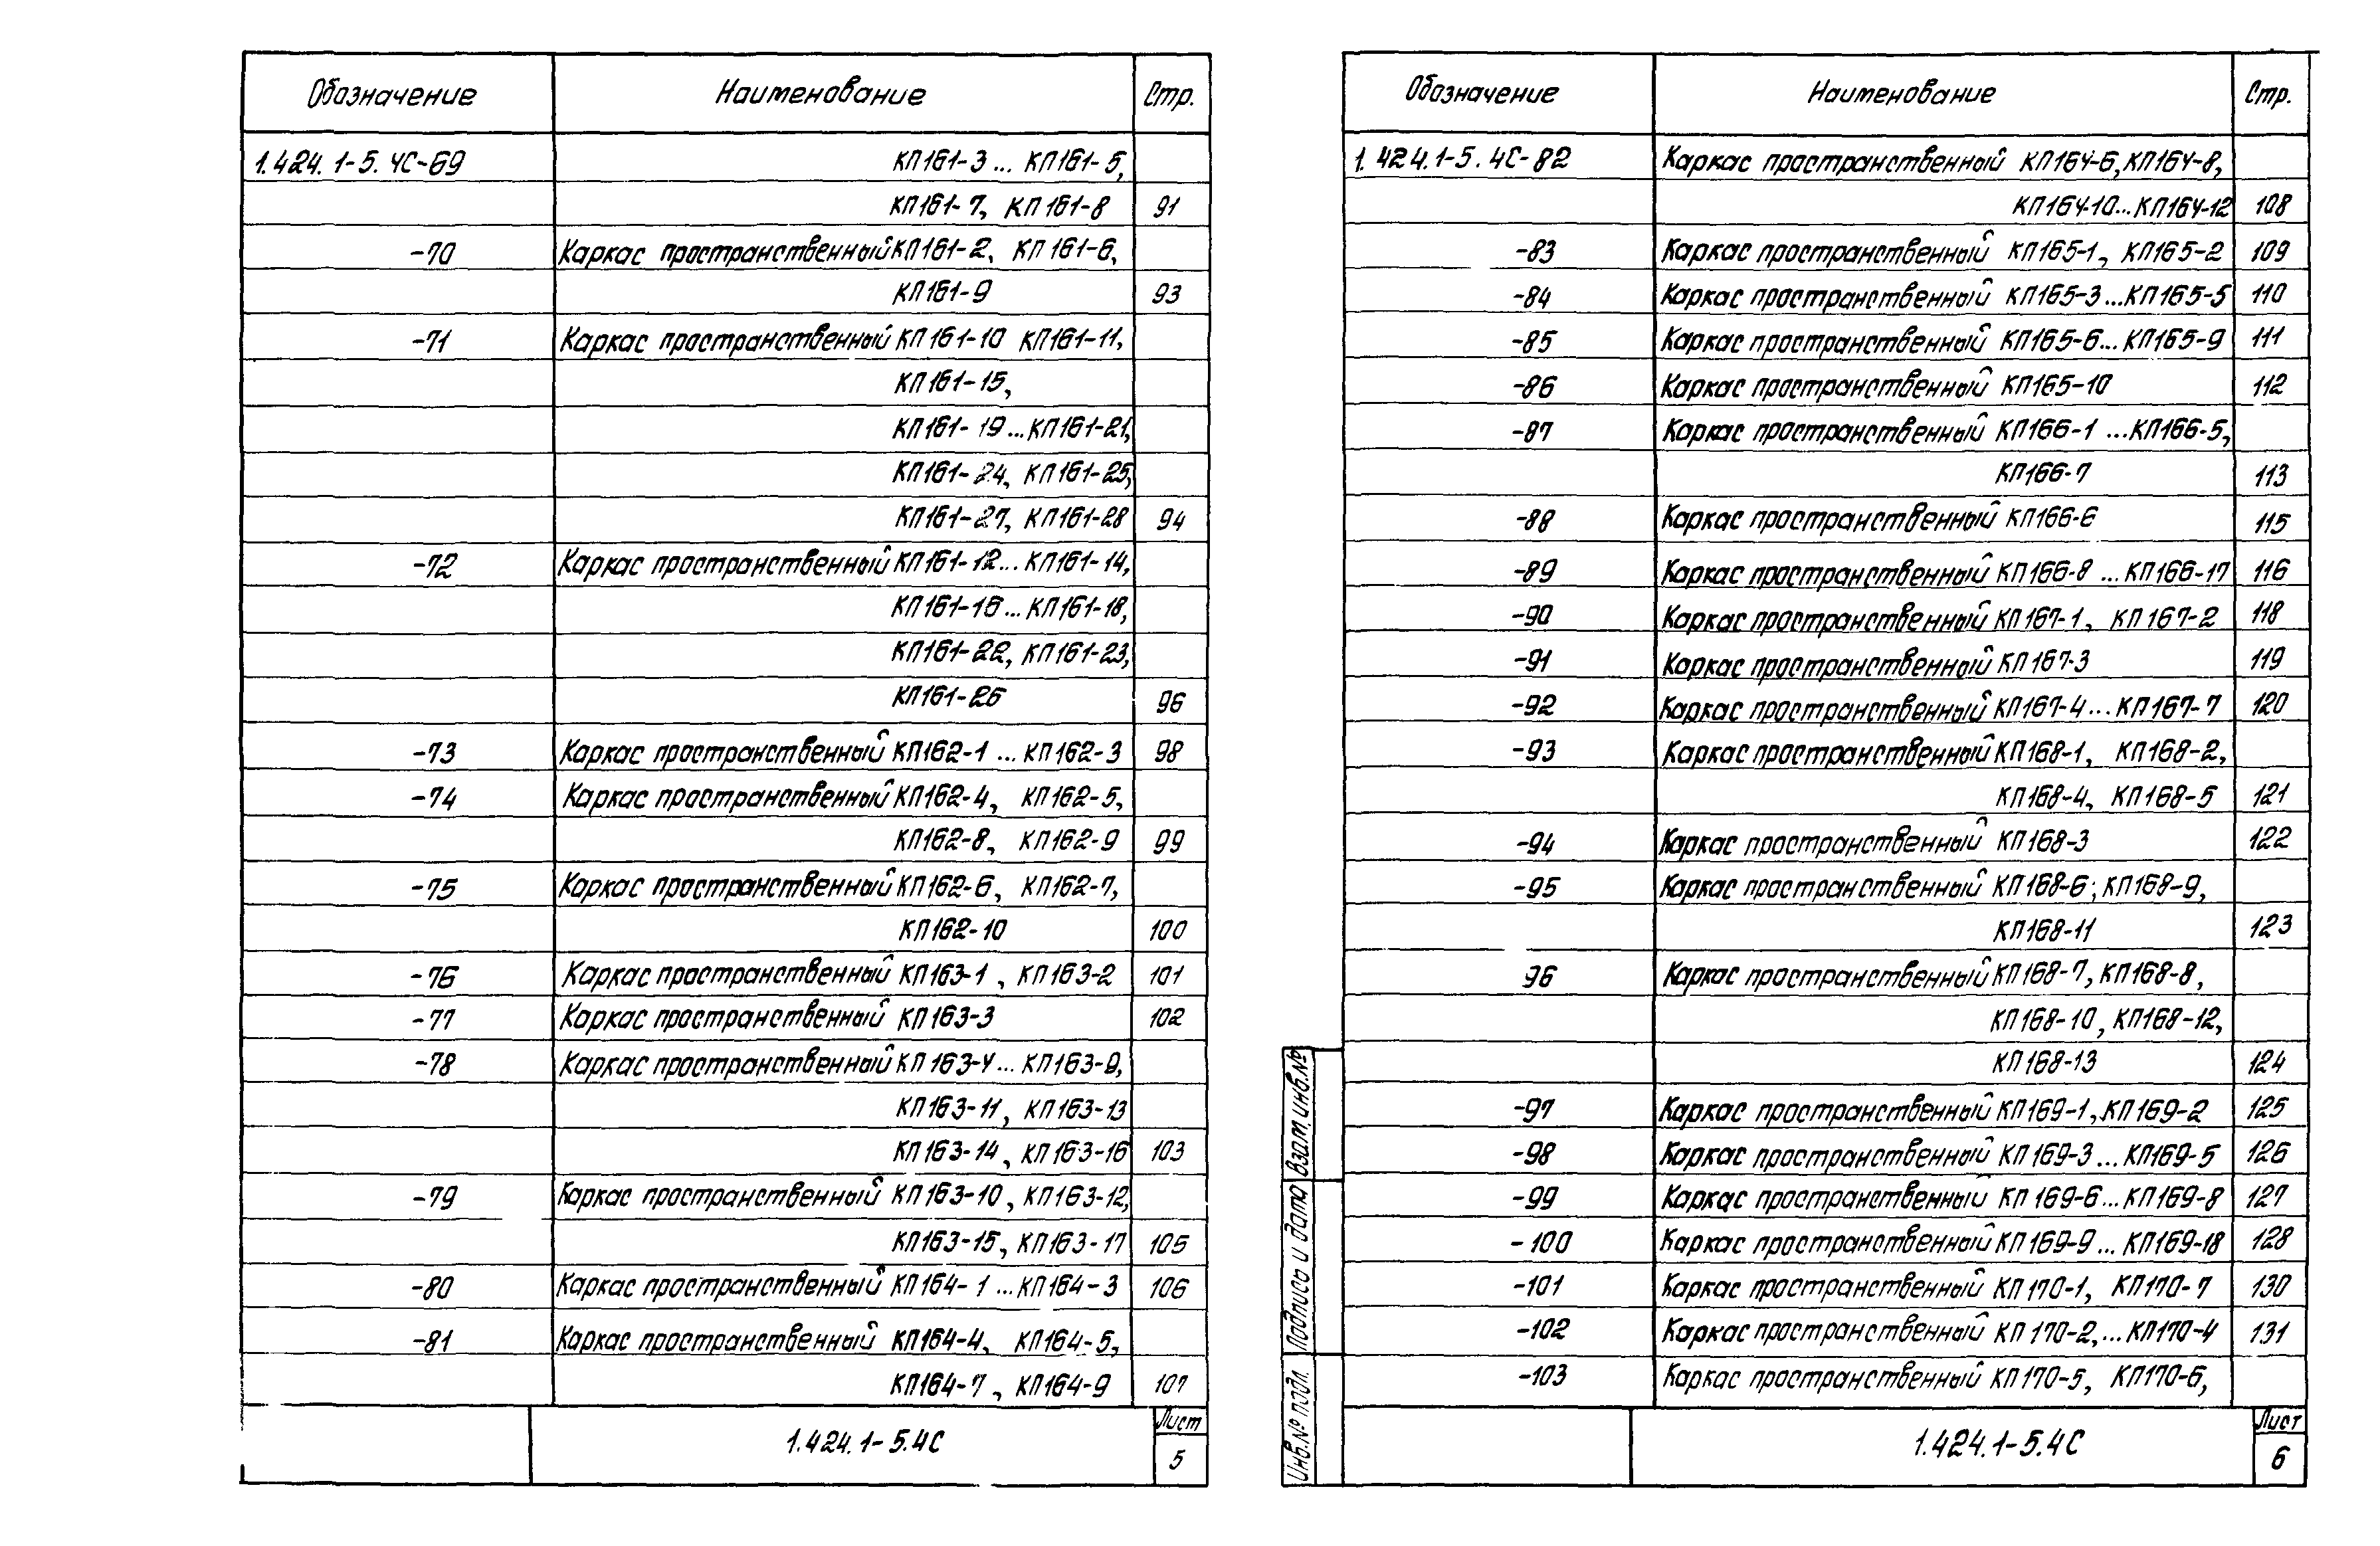 Обозначение Наименование Стр.
1.424.1-5.4С-69 КП161-3...КП161-5,
КП161-7, КП161-8 91
-70 Каркас пространственный КП161-2, КП161-6,
КП161-9 93
-71 Каркас пространственный КП161-10 КП161-11,
КП161-15,
КП161-19...КП161-21,
КП161-24, КП161-25,
КП161-27, КП161-28 94
-72 Каркас пространственный КП161-12...КП161-14,
КП161-16...КП161-18,
КП161-22, КП161-23,
КП161-26 96
-73 Каркас пространственный КП162-1...КП162-3 98
-74 Каркас пространственный КП162-4, КП162-5,
КП162-8, КП162-9 99
-75 Каркас пространственный КП162-6, КП162-7,
КП162-10 100
-76 Каркас пространственный КП163-1, КП163-2 101
-77 Каркас пространственный КП163-3 102
-78 Каркас пространственный КП163-4...КП163-9,
КП163-11, КП163-13
КП163-14, КП163-16 103
-79 Каркас пространственный КП163-10, КП163-12,
КП163-15, КП163-17 105
-80 Каркас пространственный КП164-1...КП164-3 106
-81 Каркас пространственный КП164-4, КП164-5,
КП164-7, КП164-9 107
1.424.1-5.4С
Лист
5
Обозначение Наименование Стр.
1.424.1-5.4С-82 Каркас пространственный КП164-6, КП164-8,
КП164-10...КП164-12 108
-83 Каркас пространственный КП165-1, КП165-2 109
-84 Каркас пространственный КП165-3...КП165-5 110
-85 Каркас пространственный КП165-6...КП165-9 111
-86 Каркас пространственный КП165-10 112
-87 Каркас пространственный КП166-1...КП166-5,
КП166-7 113
-88 Каркас пространственный КП166-6 115
-89 Каркас пространственный КП166-8...КП166-17 116
-90 Каркас пространственный КП167-1, КП167-2 118
-91 Каркас пространственный КП167-3 119
-92 Каркас пространственный КП167-4...КП167-7 120
-93 Каркас пространственный КП168-1, КП168-2,
КП168-4, КП168-5 121
-94 Каркас пространственный КП168-3 122
-95 Каркас пространственный КП168-6; КП168-9,
КП168-11 123
96 Каркас пространственный КП168-7, КП168-8,
КП168-10, КП168-12,
КП168-13 124
-97 Каркас пространственный КП169-1, КП169-2 125
-98 Каркас пространственный КП169-3...КП169-5 126
-99 Каркас пространственный КП169-6...КП169-8 127
-100 Каркас пространственный КП169-9...КП169-18 128
-101 Каркас пространственный КП170-1, КП170-7 130
-102 Каркас пространственный КП170-2,...КП170-4 131
-103 Каркас пространственный КП170-5, КП170-6,
Взам. инв. №
Подпись и дата
Инв. № подл.
1.424.1-5.4С
Лист
6